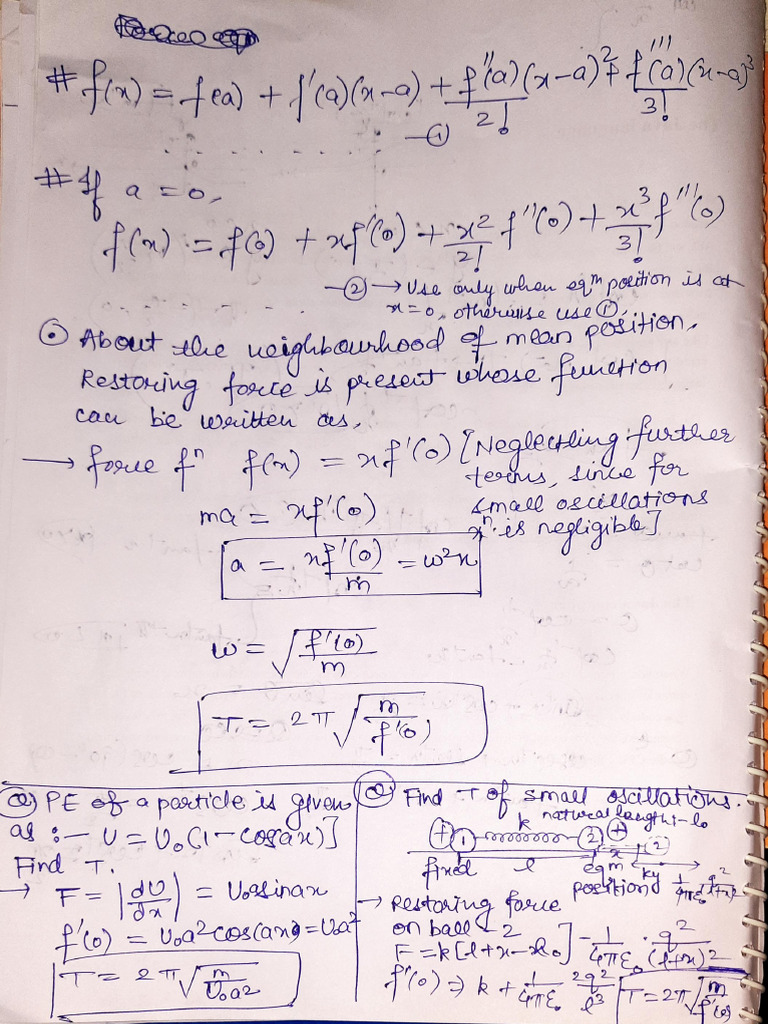 # f(x) = f(a) + f'(a)(x-a) + f''(a)(x-a)²/2! + f'''(a)(x-a)³/3!
—①
. . . . . . . .
# If a = 0,
f(x) = f(0) + xf'(0) + x²/2! f''(0) + x³/3! f'''(0)
—② → Use only when eqᵐ position is at
x=0, otherwise use ①.
⊙ About the neighbourhood of mean position,
Restoring force is present whose function
can be written as,
→ force fⁿ f(x) = xf'(0) [Neglecting further
terms, since for
small oscillations
xⁿ is negligible]
ma = xf'(0)
a = xf'(0)/m = w²x
w = √(f'(0)/m)
T = 2π √(m/f'(0))
Q) PE of a particle is given
as :— U = U₀(1-cosax)]
Find T.
→ F = |dU/dx| = U₀sinax
f'(0) = U₀a²cos(ax) = U₀a²
T = 2π√(m/U₀a²)
Q) Find T of small oscillations.
natural length:- l₀
+ ① k ② + x (2)
fixed l eqᵐ position
→ Restoring force
on ball-2
F = k[l+x-l₀] - 1/4πε₀ · q²/(l+x)²
f'(0) ⇒ k + 1/4πε₀ 2q²/l³
T = 2π√(m/f'(0))